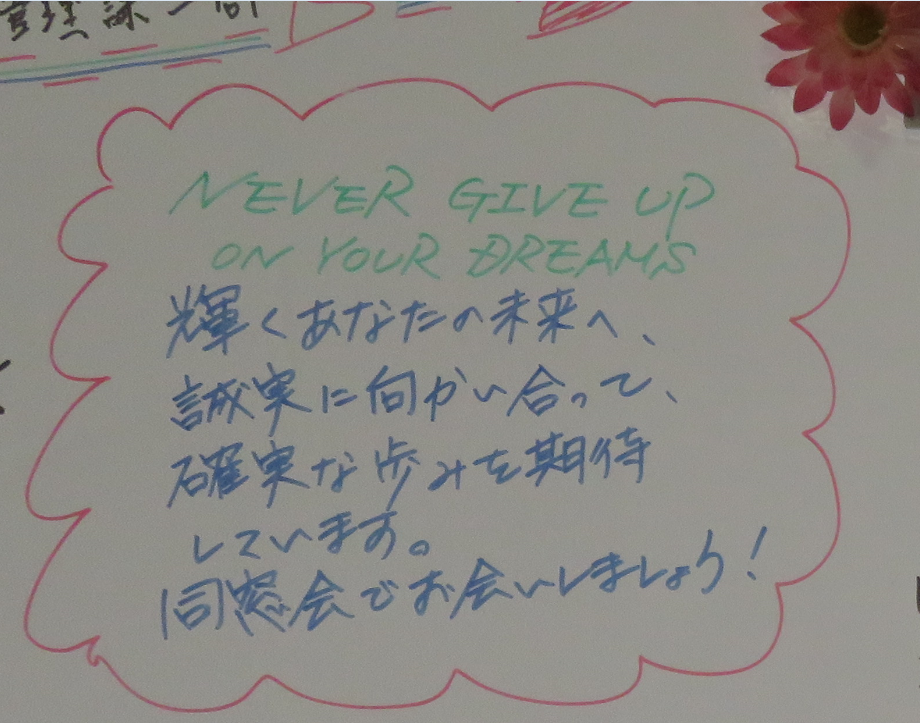 管理課一同
NEVER GIVE UP
ON YOUR DREAMS
輝くあなたの未来へ、
誠実に向かい合って、
確実な歩みを期待
しています。
同窓会でお会いしましょう!